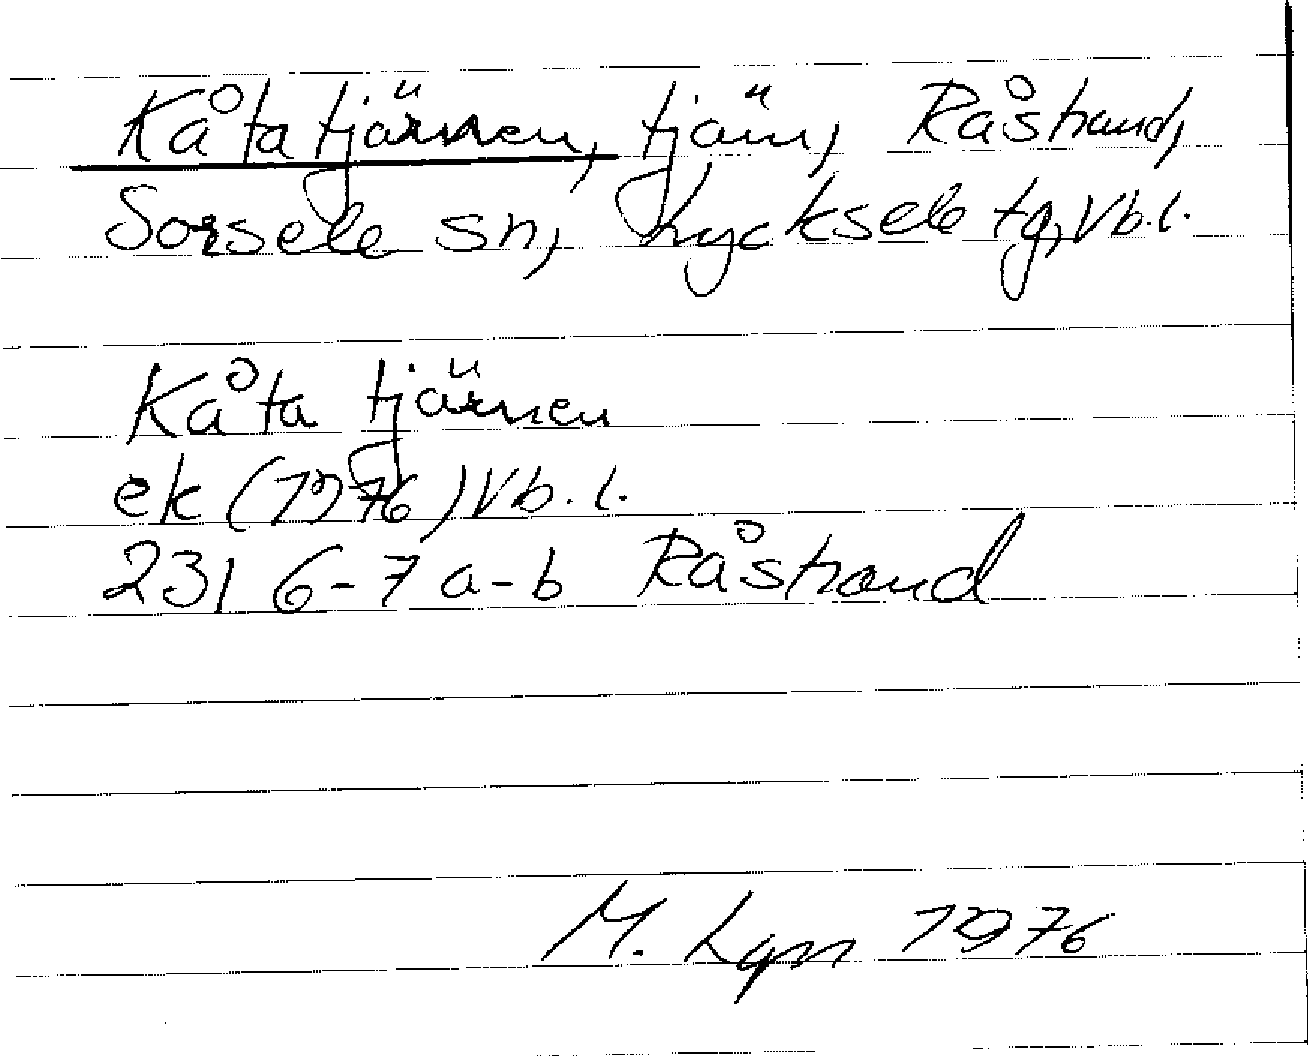 Kåtatjärnen, tjärn, Råstrand,
Sorsele sn, Lycksele tg, Vb.l.
Kåta tjärnen
ek (1976) Vb.l.
23I 6-7 a-b Råstrand
M. Lgn 1976